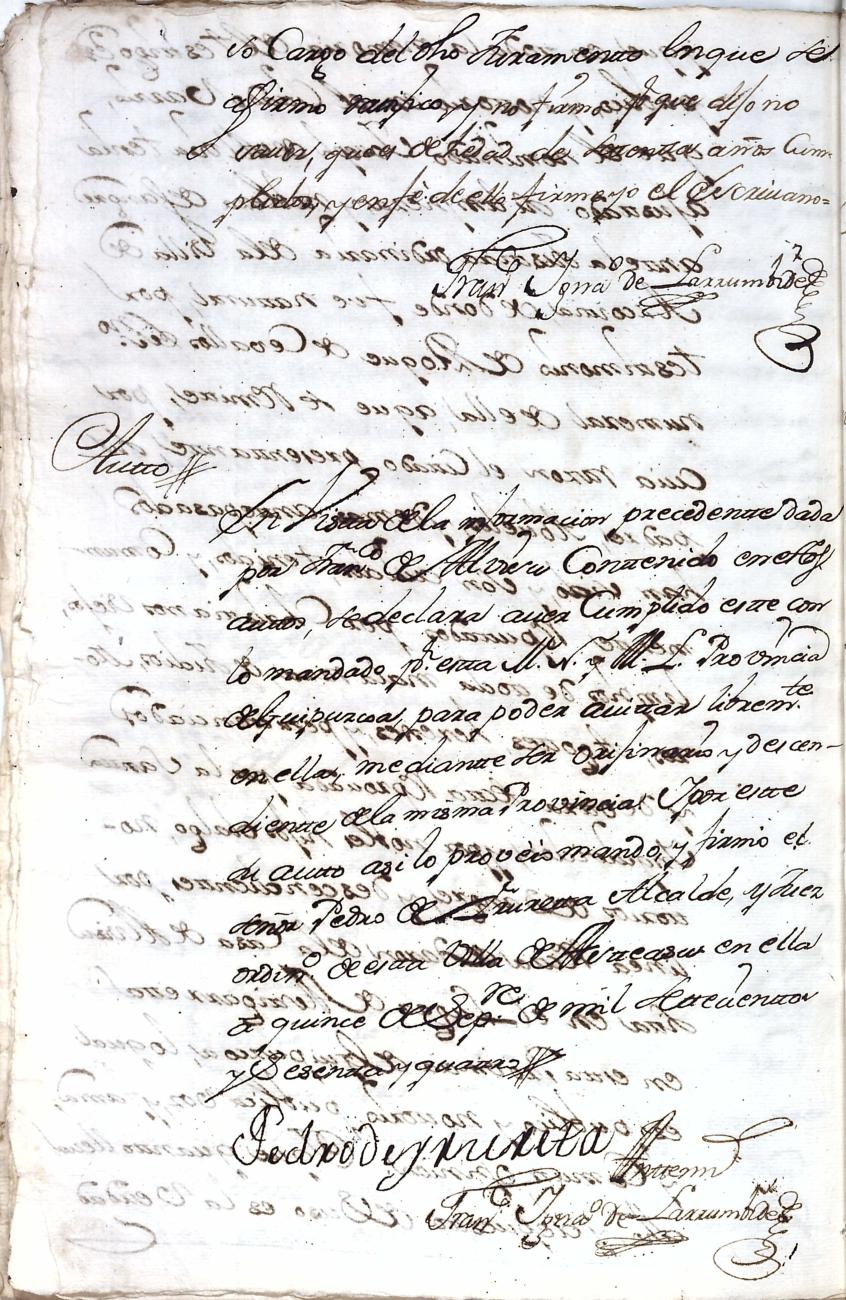 so Cargo del dho Juramento Enque se
afirmo ratifico, y no firmo pr que dijo no
saver, ques de edad de setenta años Cum-
plidos, y en fe de ello firme yo el Escriuano=
Franco Ignao de Larrumbide
Autto
En Vista de la informacion precedente dada
por Franco de Alvisu Contenido en estos
autos, se declara aver Cumplido este con
lo mandado pr esta M. N. y M. L. Provincia
de Guipuzcoa, para poder auitar libremte
en ella, mediante ser orijinario y descen-
diente de la misma Provincia. Y por este
su auto asi lo proveio mando, y firmo el
señor Pedro de Yrureta Alcalde, y Juez
ordino de esta Villa de Asteasu en ella
a quince de Sepre de mil setecientos
y Sesenta y quatro
Pedro de yrureta
Antemi
Franco Ignao de Larrumbide